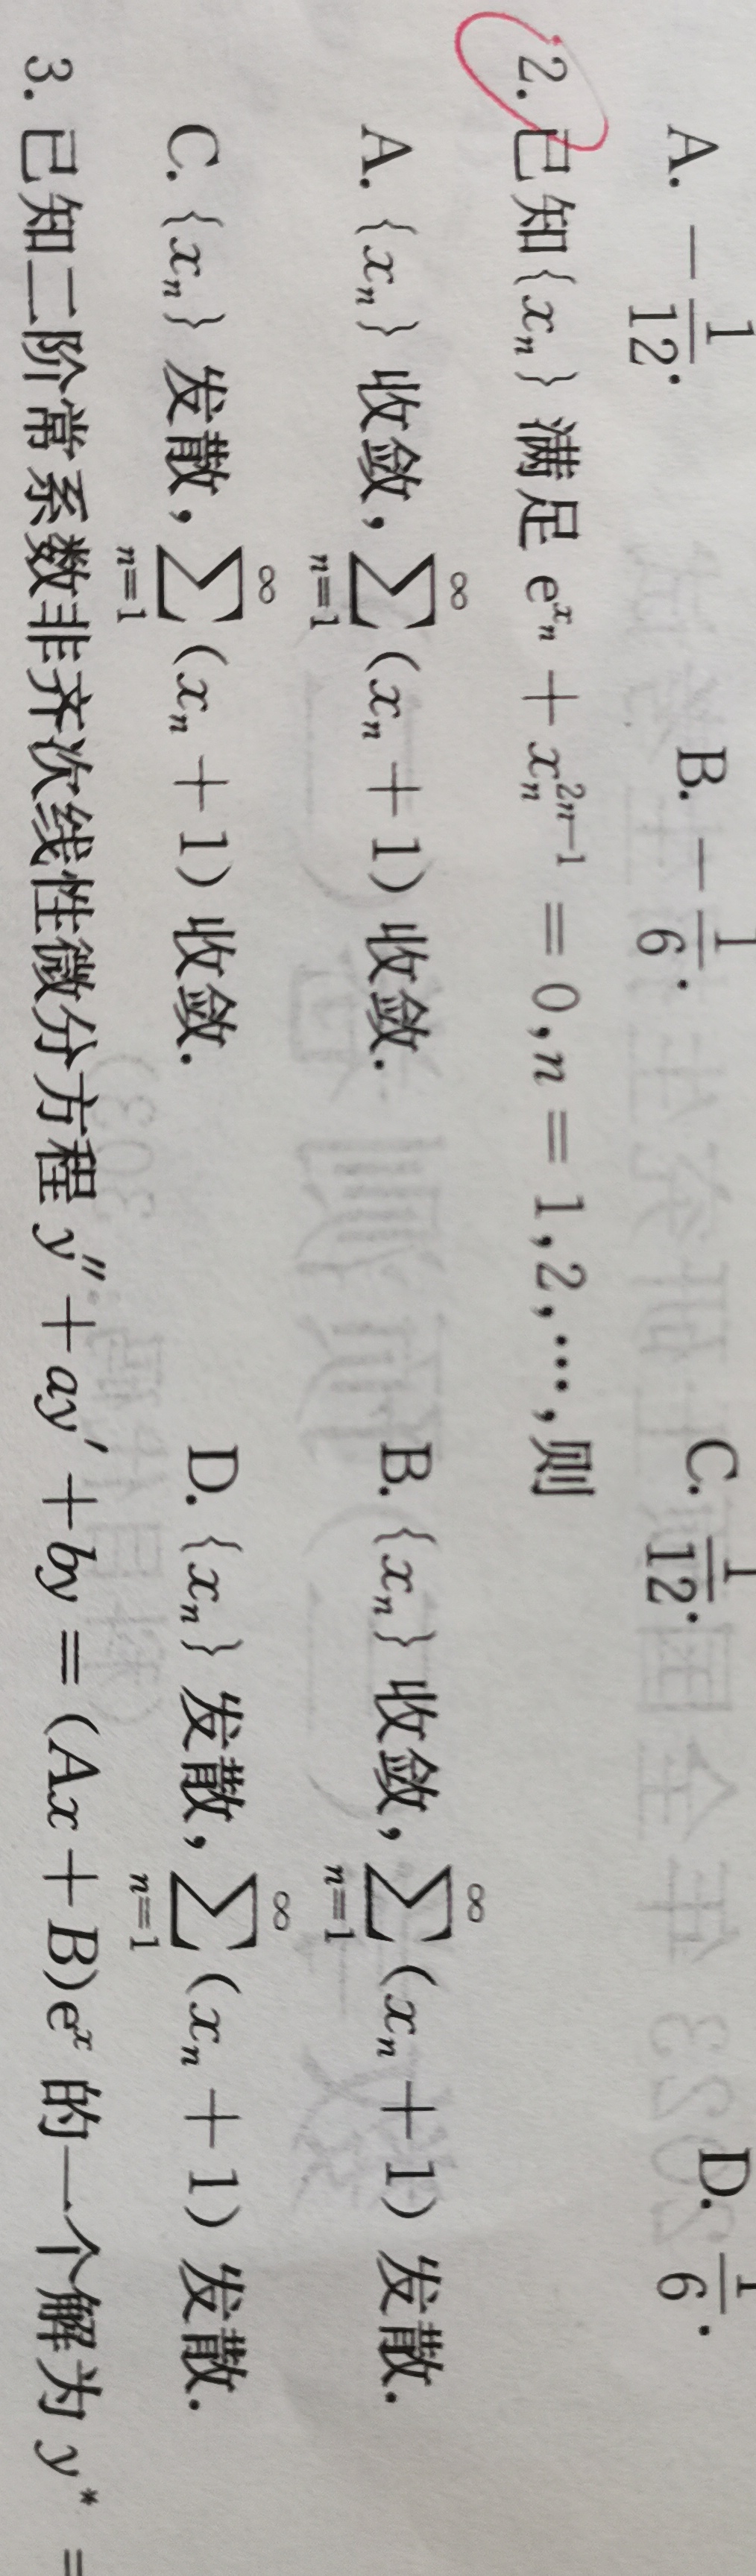 A. $-\frac{1}{12}$. B. $-\frac{1}{6}$. C. $\frac{1}{12}$. D. $\frac{1}{6}$.
2. 已知{$x_n$}满足 $e^{x_n} + x_n^{2n-1} = 0, n = 1,2,\cdots$,则
A. {$x_n$}收敛, $\sum_{n=1}^{\infty}(x_n + 1)$收敛. B. {$x_n$}收敛, $\sum_{n=1}^{\infty}(x_n + 1)$发散.
C. {$x_n$}发散, $\sum_{n=1}^{\infty}(x_n + 1)$收敛. D. {$x_n$}发散, $\sum_{n=1}^{\infty}(x_n + 1)$发散.
3. 已知二阶常系数非齐次线性微分方程 $y'' + ay' + by = (Ax + B)e^x$ 的一个解为 $y^* =$